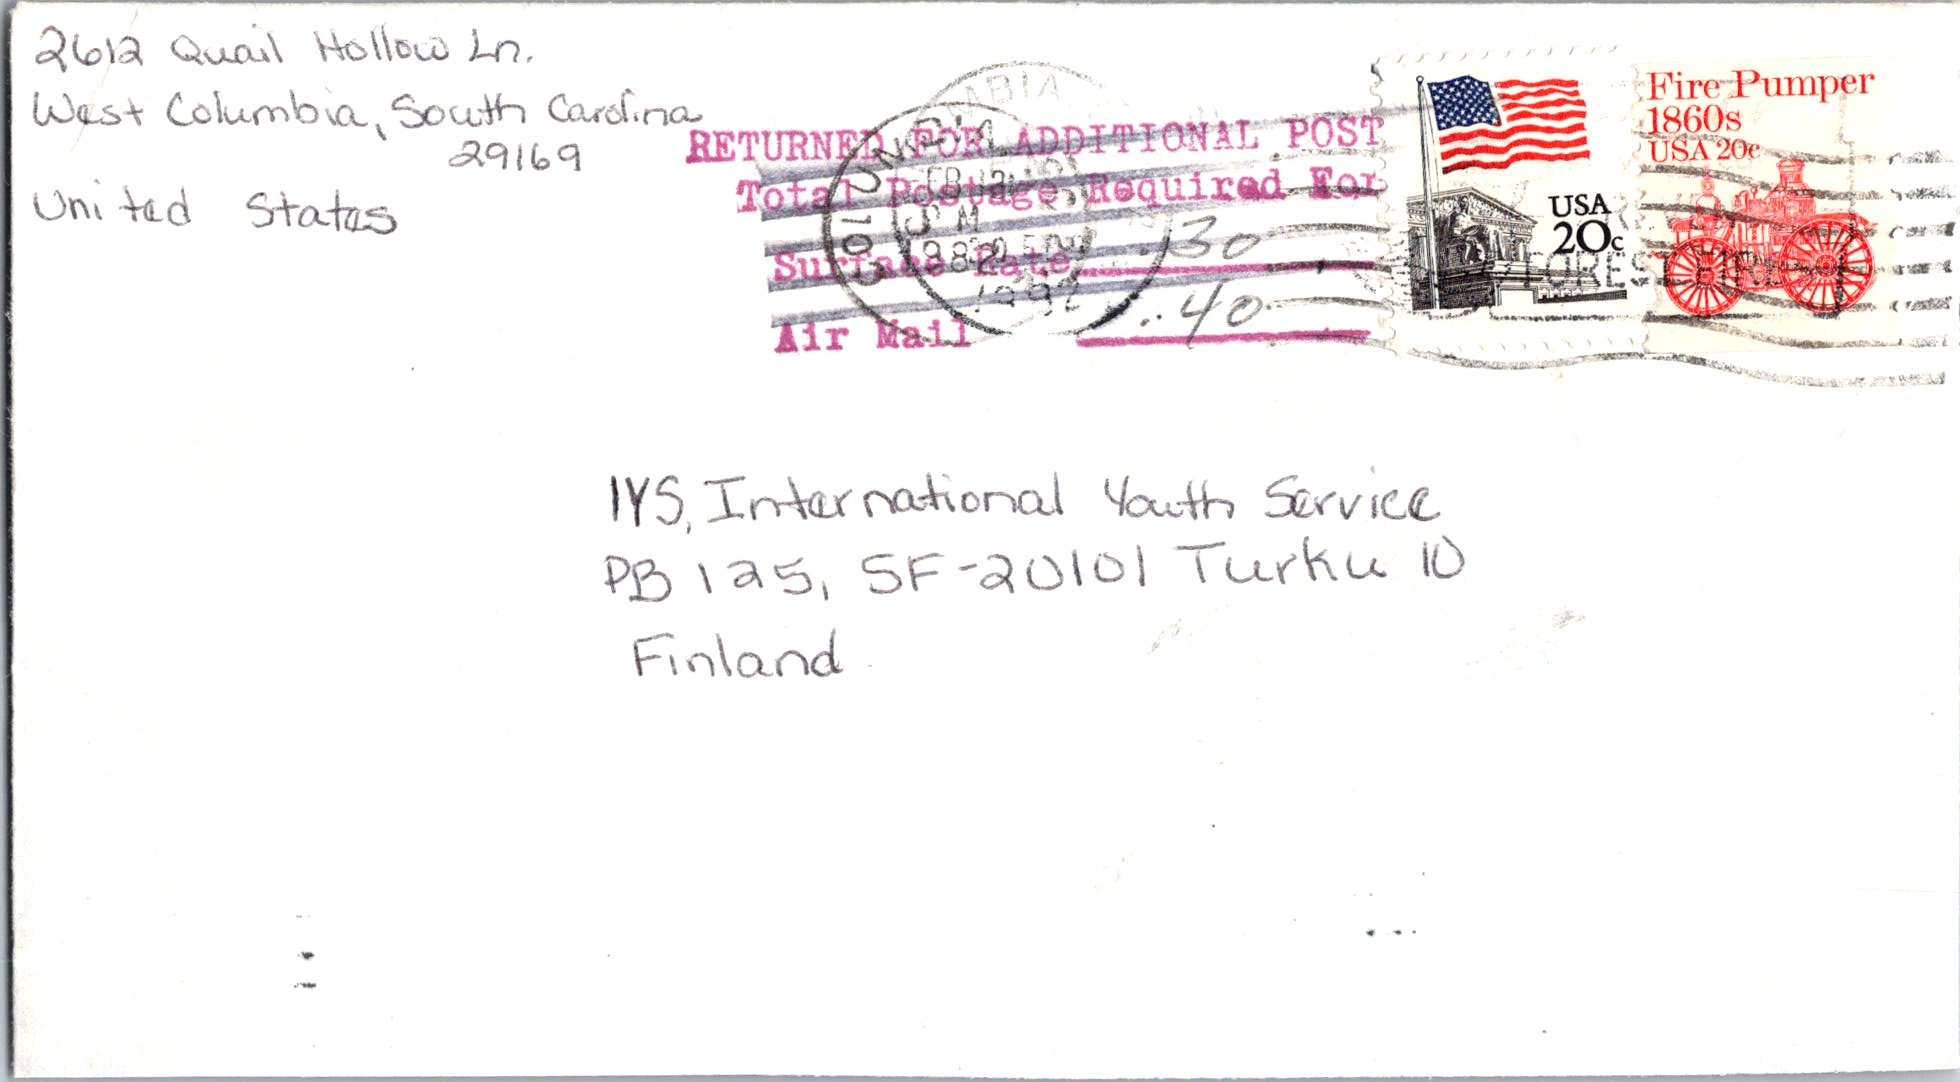 2612 Quail Hollow Ln.
West Columbia, South Carolina
29169
United States
COLUMBIA
FEB
PM
1982
RETURNED FOR ADDITIONAL POST
Total Postage Required For
Surface Rate .30
Air Mail .40
USA
20c
FOREST FIRE
Fire Pumper
1860s
USA 20c
IYS, International Youth Service
PB 125, SF-20101 Turku 10
Finland